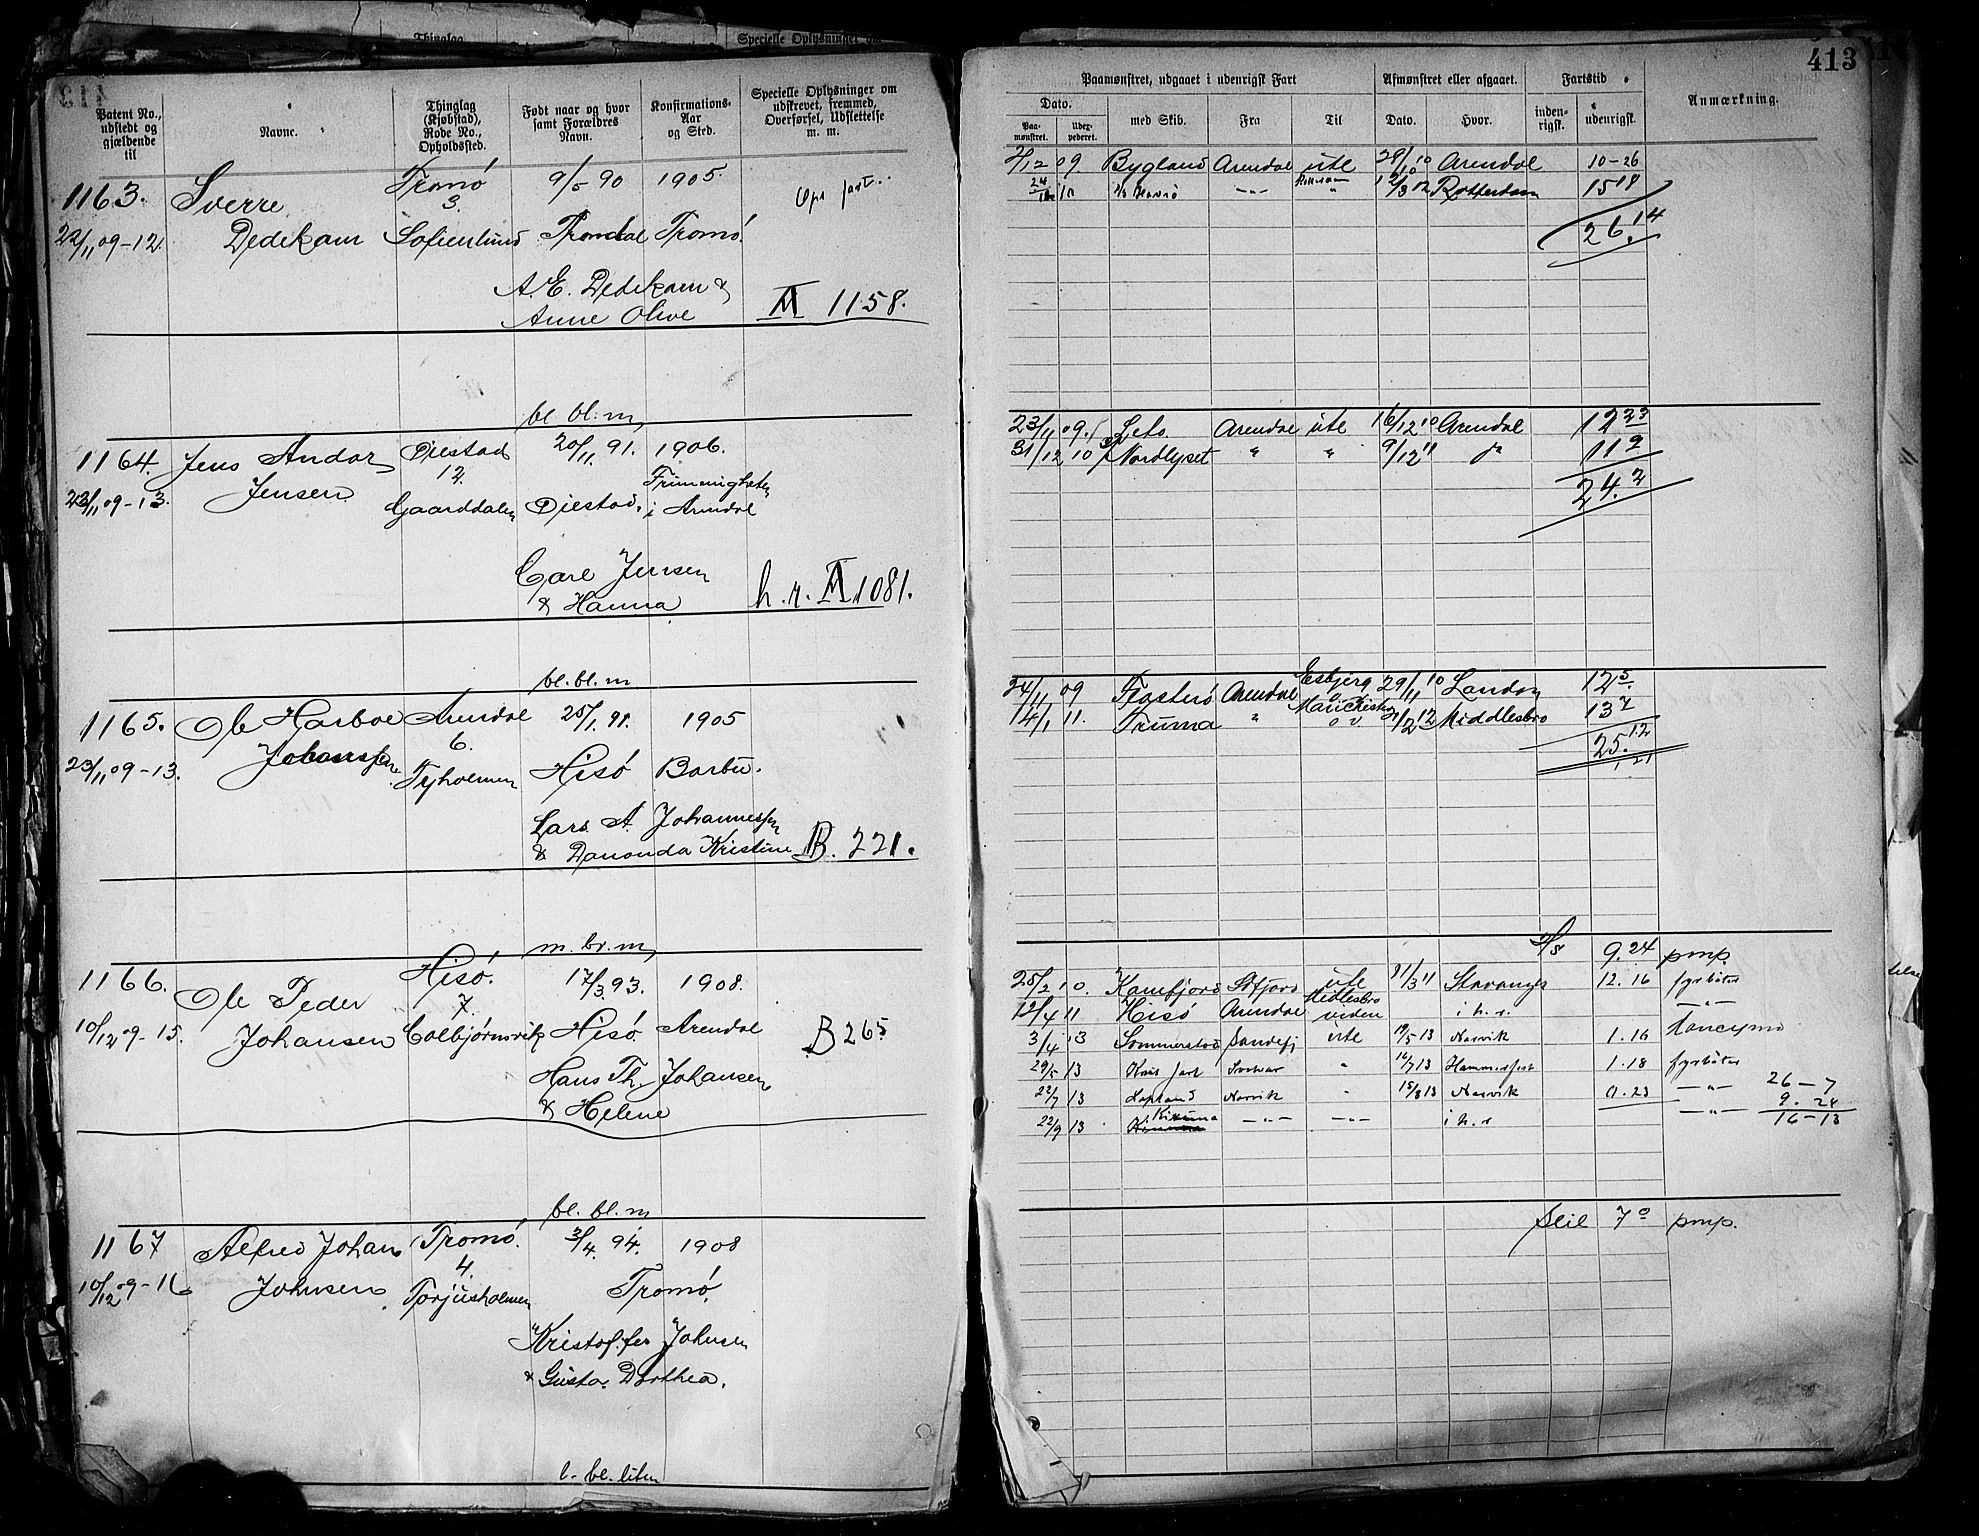 413
Patent No., udstedt og gjældende til
Navne.
Thinglag (Kjøbstad), Rode No., Opholdssted.
Født naar og hvor samt Forældres Navn.
Konfirmations-Aar og Sted.
Specielle Oplysninger om udskrevet, fremmed, Overførsel, Udslettelse m. m.
Paamønstret, udgaaet i udenrigsk Fart
Afmønstret eller afgaaet.
Fartstid
Anmærkning.
Dato.
Paa-mønstret.
Udex-pederet.
med Skib.
Fra
Til
Dato.
Hvor.
inden-rigsk.
udenrigsk.
1163. Sverre Tromø 9/5 90 1905.
3.
22/11 09-12. Dedekam Sofienlund Tromø.
A. E. Dedekam &
Anne Olive
1158.
2/12 09. Bygland Arendal ute 28/10 10 Arendal 10-26
Rotterdam 15 18
26. 14
bl. bl. m
1164. Jens Andor Øiestad 20/11. 91. 1906.
12.
23/11 09-13. Jensen Gaarddalen Øiestad. i Arendal
Carl Jensen
& Hanna
h. r. 1081.
23/11 09. Arendal ute 16/12 10 Arendal 12 23
31/12 10 Nordlyset " " 9/12 11 11 9
24. 2
bl. bl. m
1165. Ole Harboe Arendal 25/1. 91. 1905
6.
23/11 09-13. Tyholmen Hisø Barbu.
Lars A. Johannessen
& Kristine
B. 221.
24/11 09 Arendal Esbjerg 29/11 10 London 12 5.
14/1 11. Truma " Middlesbro 13 7
25. 12
m. br. m
1166. Ole Peder Hisø. 17/3. 93. 1908.
7.
10/12 09-15. Johansen Colbjørnsvik Hisø. Arendal
Hans Th. Johansen
& Helene
B 265
9. 24 pmp.
25/2 10. ute 31/3 11 12. 16 fyrbøter
12/4 11 Hisø Arendal i h. r. —"—
3/4 13 Sommerstad Sandefj ute 19/5-13 Narvik 1. 16
29/5 13 " 16/7 13 Hammerfest 1. 18 fyrbøter
22/7 13 Lapland Narvik " 15/8 13 Narvik 0. 23 —"— 26-7
9. 24
22/9 13 Kiruna —"— —"— i h. r —"— 16-13
bl. bl. m
1167 Alfred Johan Tromø. 3/4. 94. 1908
4.
10/12 09-16 Johnsen Torjusholmen Tromø.
Kristoffer Johnsen
& Gusta Dorthea.
Seil 7 0 pmp.
l- bl. liten